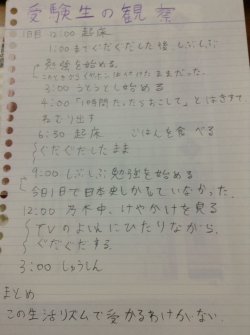 受験生の観察
1日目 12:00 起床
1:00 まで ぐだぐだした後、しぶしぶ
勉強を始める
このときからイヤホンはつけたままだった。
3:00 うとうとし始める
4:00 「1時間たったらおこして」とはきすて
ねむり出す
6:30 起床 ごはんを食べる
ぐだぐだしたまま
9:00 しぶしぶ勉強を始める
今日1日で日本史しかしていなかった。
12:00 乃木中、けやかけを見る
TVのよいんにひたりながら、
ぐだぐだする。
3:00 しゅうしん
まとめ
この生活リズムで受かるわけがない。